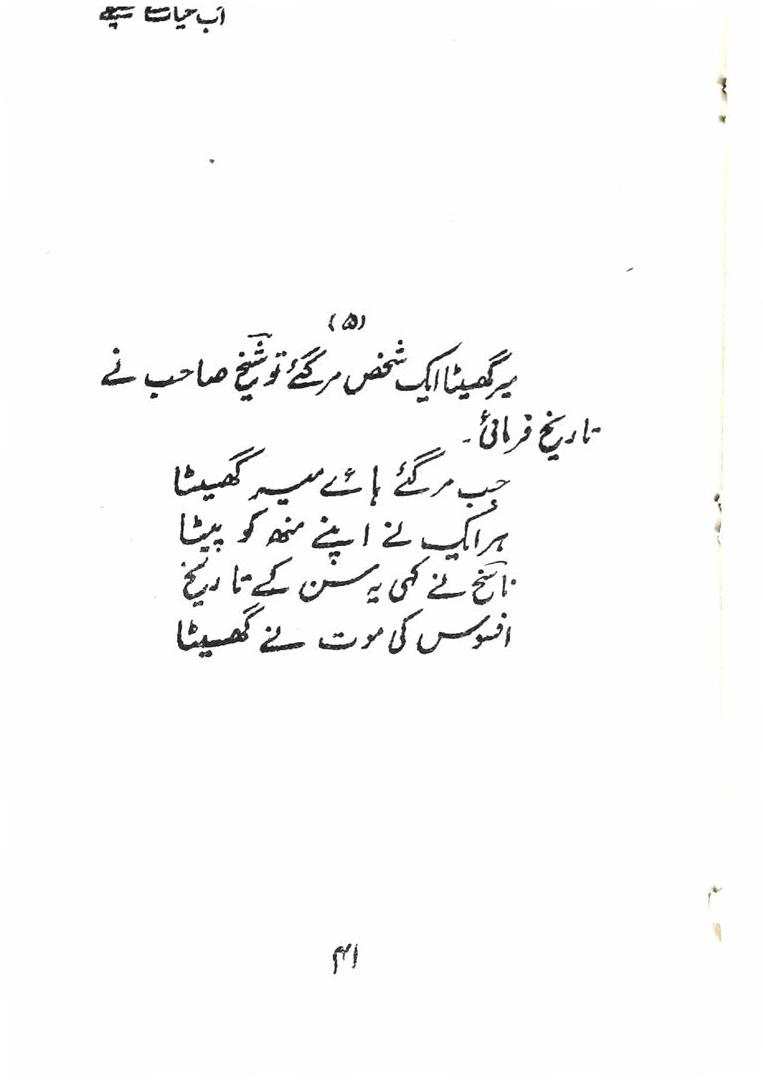 آب حیات سے
(۵)
میر گھسیٹا ایک شخص مر گئے تو شیخ صاحب نے
تاریخ فرمائی۔
جب مر گئے ہائے میر گھسیٹا
ہر ایک نے اپنے منھ کو پیٹا
ناسخ نے کہی یہ سن کے تاریخ
افسوس کی موت نے گھسیٹا
۴۱